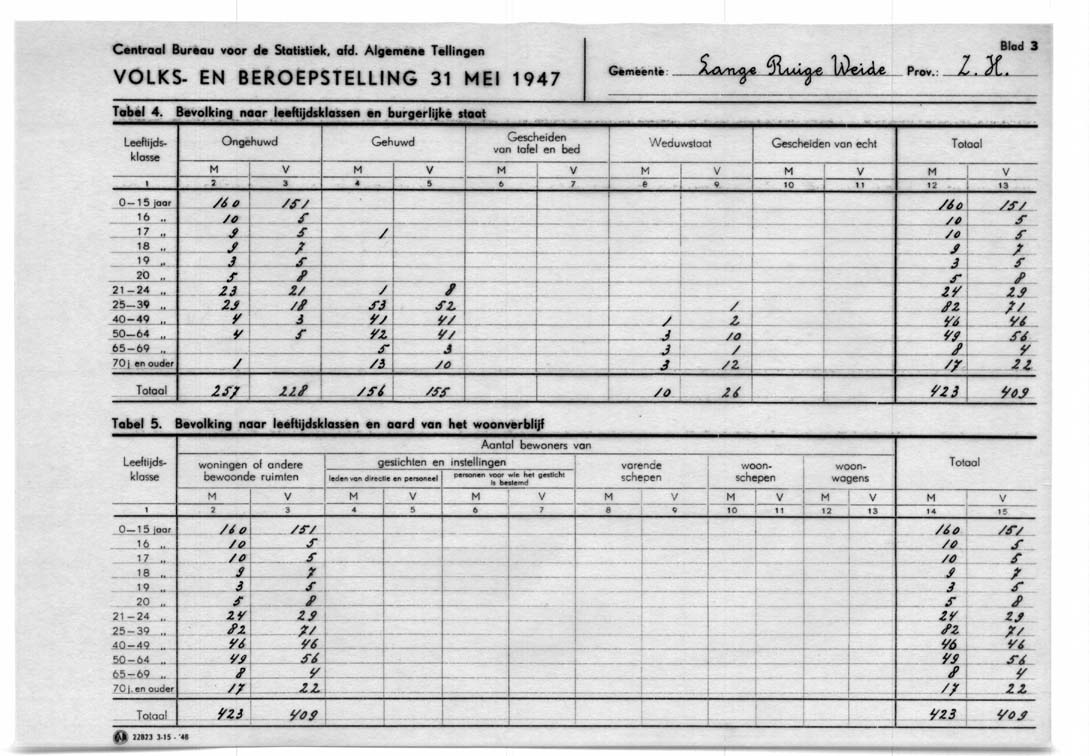 Centraal Bureau voor de Statistiek, afd. Algemene Tellingen
VOLKS- EN BEROEPSTELLING 31 MEI 1947
Gemeente: Lange Ruige Weide Prov.: Z. H.
Blad 3
Tabel 4. Bevolking naar leeftijdsklassen en burgerlijke staat
Leeftijds-klasse Ongehuwd Gehuwd Gescheiden van tafel en bed Weduwstaat Gescheiden van echt Totaal
M V M V M V M V M V M V
1 2 3 4 5 6 7 8 9 10 11 12 13
0—15 jaar 160 151 160 151
16 „ 10 5 10 5
17 „ 9 5 1 10 5
18 „ 9 7 9 7
19 „ 3 5 3 5
20 „ 5 8 5 8
21—24 „ 23 21 1 8 24 29
25—39 „ 29 18 53 52 1 82 71
40—49 „ 4 3 41 41 1 2 46 46
50—64 „ 4 5 42 41 3 10 49 56
65—69 „ 5 3 3 1 8 4
70 j. en ouder 1 13 10 3 12 17 22
Totaal 257 228 156 155 10 26 423 409
Tabel 5. Bevolking naar leeftijdsklassen en aard van het woonverblijf
Aantal bewoners van
Leeftijds-klasse woningen of andere bewoonde ruimten gestichten en instellingen varende schepen woon-schepen woon-wagens Totaal
leden van directie en personeel personen voor wie het gesticht is bestemd
M V M V M V M V M V M V M V
1 2 3 4 5 6 7 8 9 10 11 12 13 14 15
0—15 jaar 160 151 160 151
16 „ 10 5 10 5
17 „ 10 5 10 5
18 „ 9 7 9 7
19 „ 3 5 3 5
20 „ 5 8 5 8
21—24 „ 24 29 24 29
25—39 „ 82 71 82 71
40—49 „ 46 46 46 46
50—64 „ 49 56 49 56
65—69 „ 8 4 8 4
70 j. en ouder 17 22 17 22
Totaal 423 409 423 409
22823 3-15 - '48